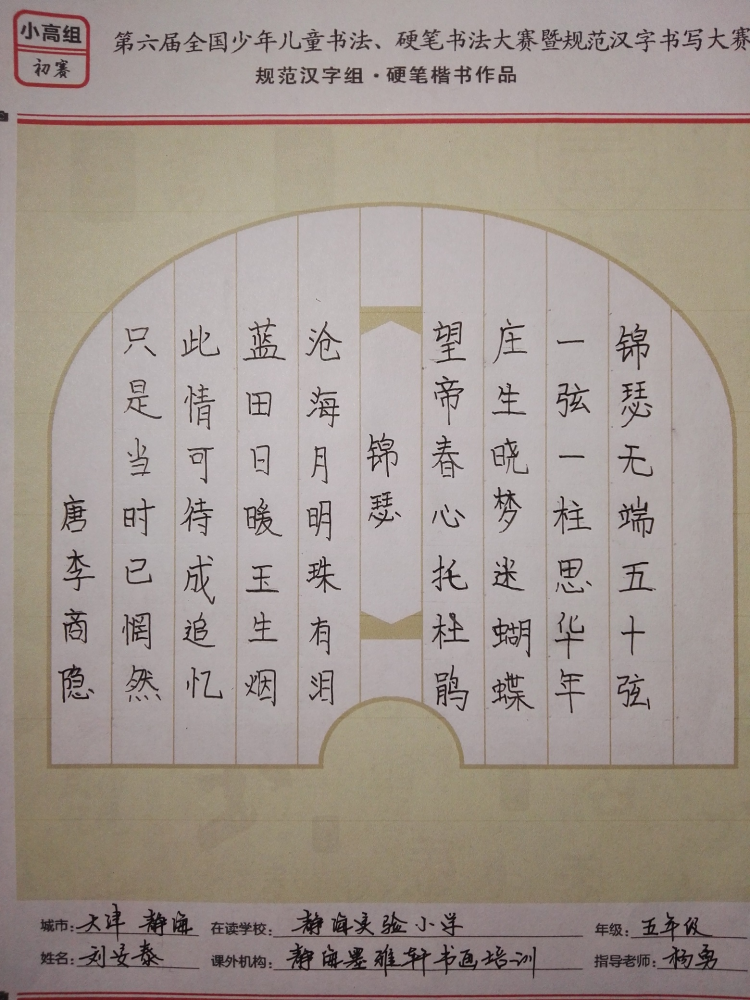 小高组
初赛
第六届全国少年儿童书法、硬笔书法大赛暨规范汉字书写大赛
规范汉字组·硬笔楷书作品
锦瑟无端五十弦
一弦一柱思华年
庄生晓梦迷蝴蝶
望帝春心托杜鹃
锦瑟
沧海月明珠有泪
蓝田日暖玉生烟
此情可待成追忆
只是当时已惘然
唐李商隐
城市：天津 静海 在读学校：静海实验小学 年级：五年级
姓名：刘安泰 课外机构：静海墨雅轩书画培训 指导老师：杨勇